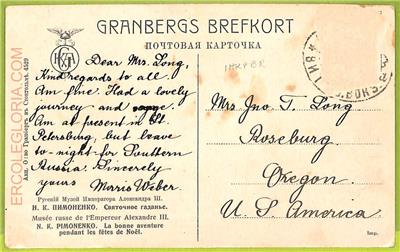 GRANBERGS BREFKORT
ПОЧТОВАЯ КАРТОЧКА
Dear Mrs. Long,
Kind regards to all.
Am fine. Had a lovely
journey and
Am at present in St.
Petersburg, but leave
to-night for Southern
Russia. Sincerely
yours Morris Weber.
Mrs Jno. T. Long
Roseburg.
Oregon.
U. S. America.
Русскій Музей Императора Александра III.
Н. К. ПИМОНЕНКО. Святочное гаданье.
Musée russe de l'Empereur Alexandre III.
N. K. PIMONENKO. La bonne aventure
pendant les fêtes de Noël.
ERCOLEGLORIA.COM
Акц. О-во Гранбергъ въ Стокгольмѣ. 4529